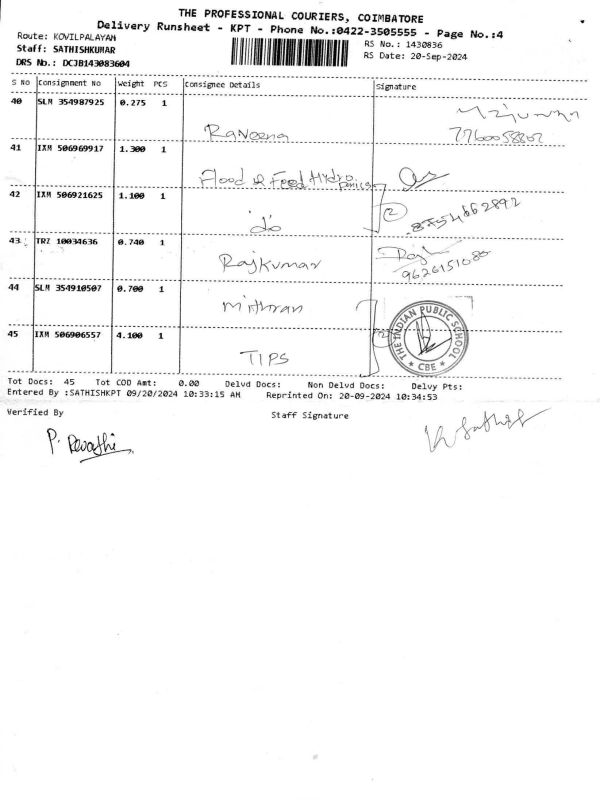 THE PROFESSIONAL COURIERS, COIMBATORE
Delivery Runsheet - KPT - Phone No.:0422-3505555 - Page No.:4
Route: KOVILPALAYAM
Staff: SATHISHKUMAR
DRS No.: DCJB143083604
RS No.: 1430836
RS Date: 20-Sep-2024
S No Consignment No Weight PCS Consignee Details Signature
40 SLM 354987925 0.275 1
Raveena
41 IXM 506969917 1.300 1
Flood & Feed Hydro ponics
42 IXM 506921625 1.100 1
do (2) 8754662892
43 TRZ 10034636 0.740 1
Rajkumar 9626151080
44 SLM 354910507 0.700 1
Mithran
45 IXM 506906557 4.100 1
TIPS (2)
THE INDIAN PUBLIC SCHOOL
★ CBE ★
Tot Docs: 45 Tot COD Amt: 0.00 Delvd Docs: Non Delvd Docs: Delvy Pts:
Entered By :SATHISHKPT 09/20/2024 10:33:15 AM Reprinted On: 20-09-2024 10:34:53
Verified By Staff Signature
P. Revathi K Sathish